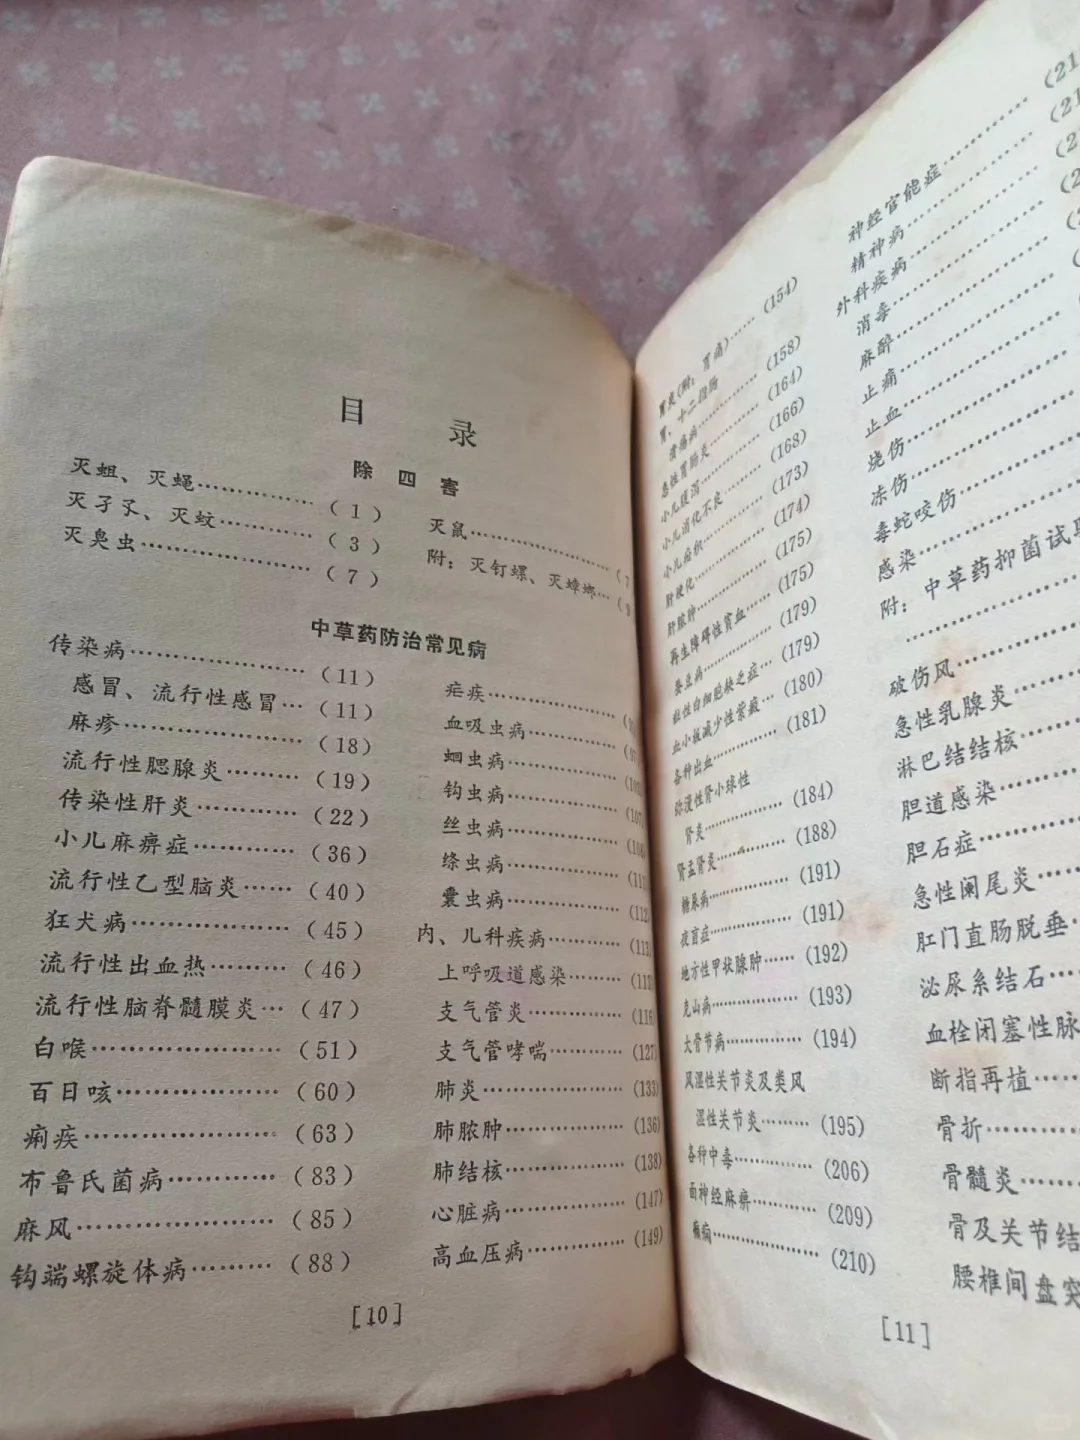 目 录
除四害
灭蛆、灭蝇……………(1)
灭孑孓、灭蚊…………(3)
灭臭虫…………………(7)
灭鼠……………………
附：灭钉螺、灭蟑螂…(9
中草药防治常见病
传染病…………………(11)
感冒、流行性感冒…(11)
麻疹…………………(18)
流行性腮腺炎………(19)
传染性肝炎…………(22)
小儿麻痹症…………(36)
流行性乙型脑炎……(40)
狂犬病………………(45)
流行性出血热………(46)
流行性脑脊髓膜炎…(47)
白喉…………………(51)
百日咳………………(60)
痢疾…………………(63)
布鲁氏菌病…………(83)
麻风…………………(85)
钩端螺旋体病………(88)
疟疾…………………
血吸虫病……………
蛔虫病………………
钩虫病………………
丝虫病………………
绦虫病………………
囊虫病………………(112
内、儿科疾病…………(113
上呼吸道感染………(113)
支气管炎……………(116)
支气管哮喘…………(127)
肺炎…………………(133)
肺脓肿………………(136)
肺结核………………(138)
心脏病………………(147)
高血压病……………(149)
[10]
胃炎(附：胃痛)……(154)
胃、十二指肠
溃疡病………………(158)
急性胃肠炎…………(164)
小儿腹泻……………(166)
小儿消化不良………(168)
小儿疳积……………(173)
肝硬化………………(174)
肝脓肿………………(175)
再生障碍性贫血……(175)
蚕豆病………………(179)
粒性白细胞缺乏症…(179)
血小板减少性紫癜…(180)
各种出血……………(181)
弥漫性肾小球性
肾炎…………………(184)
肾盂肾炎……………(188)
糖尿病………………(191)
夜盲症………………(191)
地方性甲状腺肿……(192)
克山病………………(193)
大骨节病……………(194)
风湿性关节炎及类风
湿性关节炎…………(195)
各种中毒……………(206)
面神经麻痹…………(209)
癫痫…………………(210)
神经官能症…………(21
精神病………………(21
外科疾病………………(2
消毒…………………(2
麻醉…………………(
止痛…………………(
止血…………………
烧伤…………………
冻伤…………………
毒蛇咬伤……………
感染…………………
附：中草药抑菌试
……………………
破伤风………………
急性乳腺炎…………
淋巴结结核…………
胆道感染……………
胆石症………………
急性阑尾炎…………
肛门直肠脱垂………
泌尿系结石…………
血栓闭塞性脉
断指再植……………
骨折…………………
骨髓炎………………
骨及关节结
腰椎间盘突
[11]